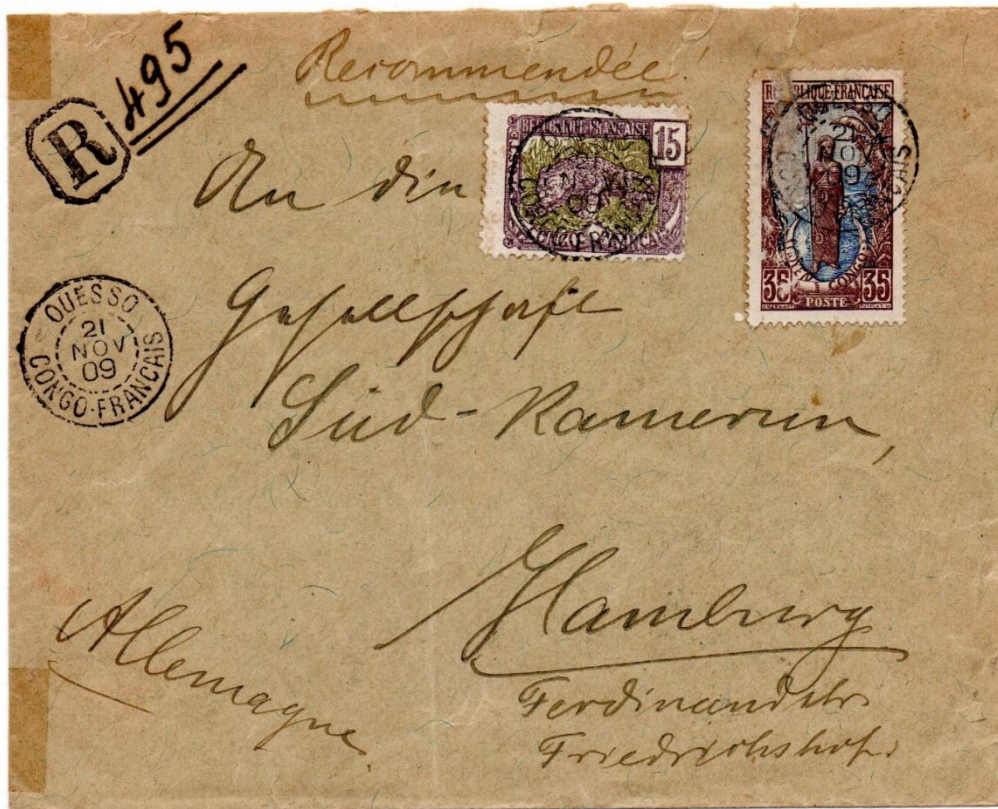 R 495
Recommendée!
REPUBLIQUE FRANÇAISE
15
CONGO FRANÇAIS
REPUBLIQUE FRANÇAISE
21
NOV
09
35 POSTE 35
An die
Gesellschaft
Süd-Kamerun,
OUESSO
21
NOV
09
CONGO-FRANÇAIS
Hamburg
Allemagne
Ferdinandstr.
Friedrichshof.